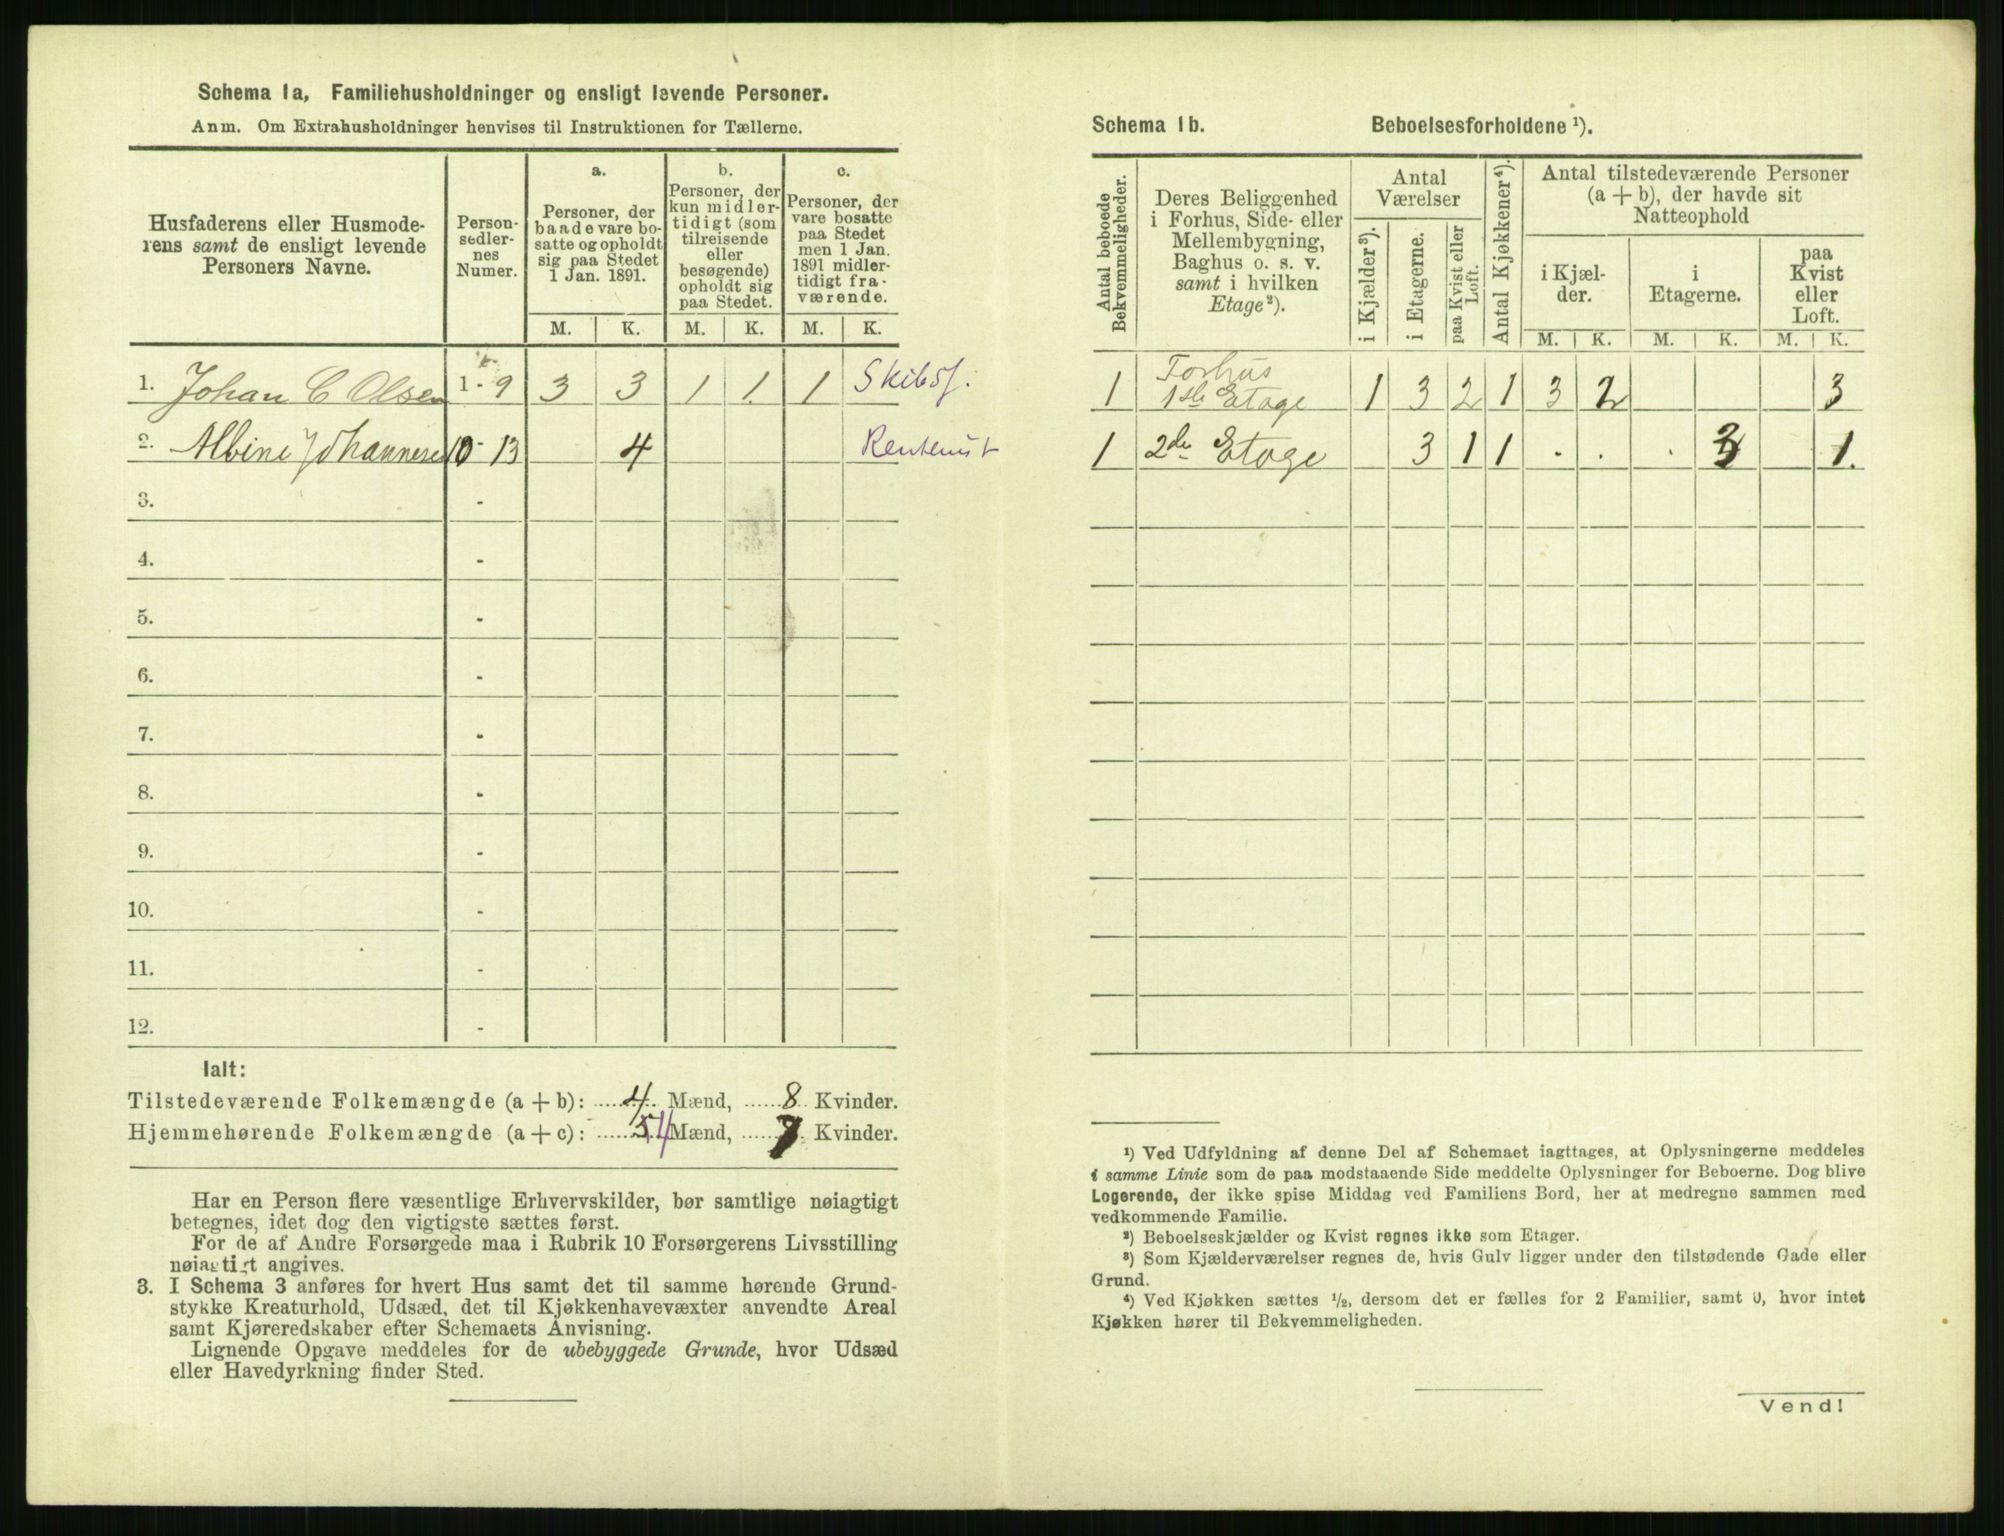 Schema 1a, Familiehusholdninger og ensligt levende Personer.
Anm. Om Extrahusholdninger henvises til Instruktionen for Tællerne.
Husfaderens eller Husmode-
rens samt de ensligt levende
Personers Navne.
Person-
sedler-
nes
Numer.
a.
Personer, der
baade vare bo-
satte og opholdt
sig paa Stedet
1 Jan. 1891.
b.
Personer, der
kun midler-
tidigt (som
tilreisende
eller
besøgende)
opholdt sig
paa Stedet.
c.
Personer, der
vare bosatte
paa Stedet
men 1 Jan.
1891 midler-
tidigt fra-
værende.
M. K. M. K. M. K.
1. Johan C Olsen 1 - 9 3 3 1 1. 1 Skibsf.
2. Albine Johannesen 10 - 13 4 Rentenist
3. -
4. -
5. -
6. -
7. -
8. -
9. -
10. -
11. -
12. -
Ialt:
Tilstedeværende Folkemængde (a + b): 4 Mænd, 8 Kvinder.
Hjemmehørende Folkemængde (a + c): 54 Mænd, 7 Kvinder.
Har en Person flere væsentlige Erhvervskilder, bør samtlige nøiagtigt
betegnes, idet dog den vigtigste sættes først.
For de af Andre Forsørgede maa i Rubrik 10 Forsørgerens Livsstilling
nøiagtigt angives.
3. I Schema 3 anføres for hvert Hus samt det til samme hørende Grund-
stykke Kreaturhold, Udsæd, det til Kjøkkenhavevæxter anvendte Areal
samt Kjøreredskaber efter Schemaets Anvisning.
Lignende Opgave meddeles for de ubebyggede Grunde, hvor Udsæd
eller Havedyrkning finder Sted.
Schema 1b. Beboelsesforholdene ¹).
Antal beboede
Bekvemmeligheder.
Deres Beliggenhed
i Forhus, Side- eller
Mellembygning,
Baghus o. s. v.
samt i hvilken
Etage²).
Antal
Værelser
i Kjælder³).
i Etagerne.
paa Kvist eller
Loft.
Antal Kjøkkener⁴).
Antal tilstedeværende Personer
(a + b), der havde sit
Natteophold
i Kjæl-
der.
i
Etagerne.
paa
Kvist
eller
Loft.
M. K. M. K. M. K.
1 Forhus
1ste Etage 1 3 2 1 3 2 3
1 2den Etage 3 1 1 . . . 3 1.
¹) Ved Udfyldning af denne Del af Schemaet iagttages, at Oplysningerne meddeles
i samme Linie som de paa modstaaende Side meddelte Oplysninger for Beboerne. Dog blive
Logerende, der ikke spise Middag ved Familiens Bord, her at medregne sammen med
vedkommende Familie.
²) Beboelseskjælder og Kvist regnes ikke som Etager.
³) Som Kjælderværelser regnes de, hvis Gulv ligger under den tilstødende Gade eller
Grund.
⁴) Ved Kjøkken sættes ½, dersom det er fælles for 2 Familier, samt 0, hvor intet
Kjøkken hører til Bekvemmeligheden.
Vend!